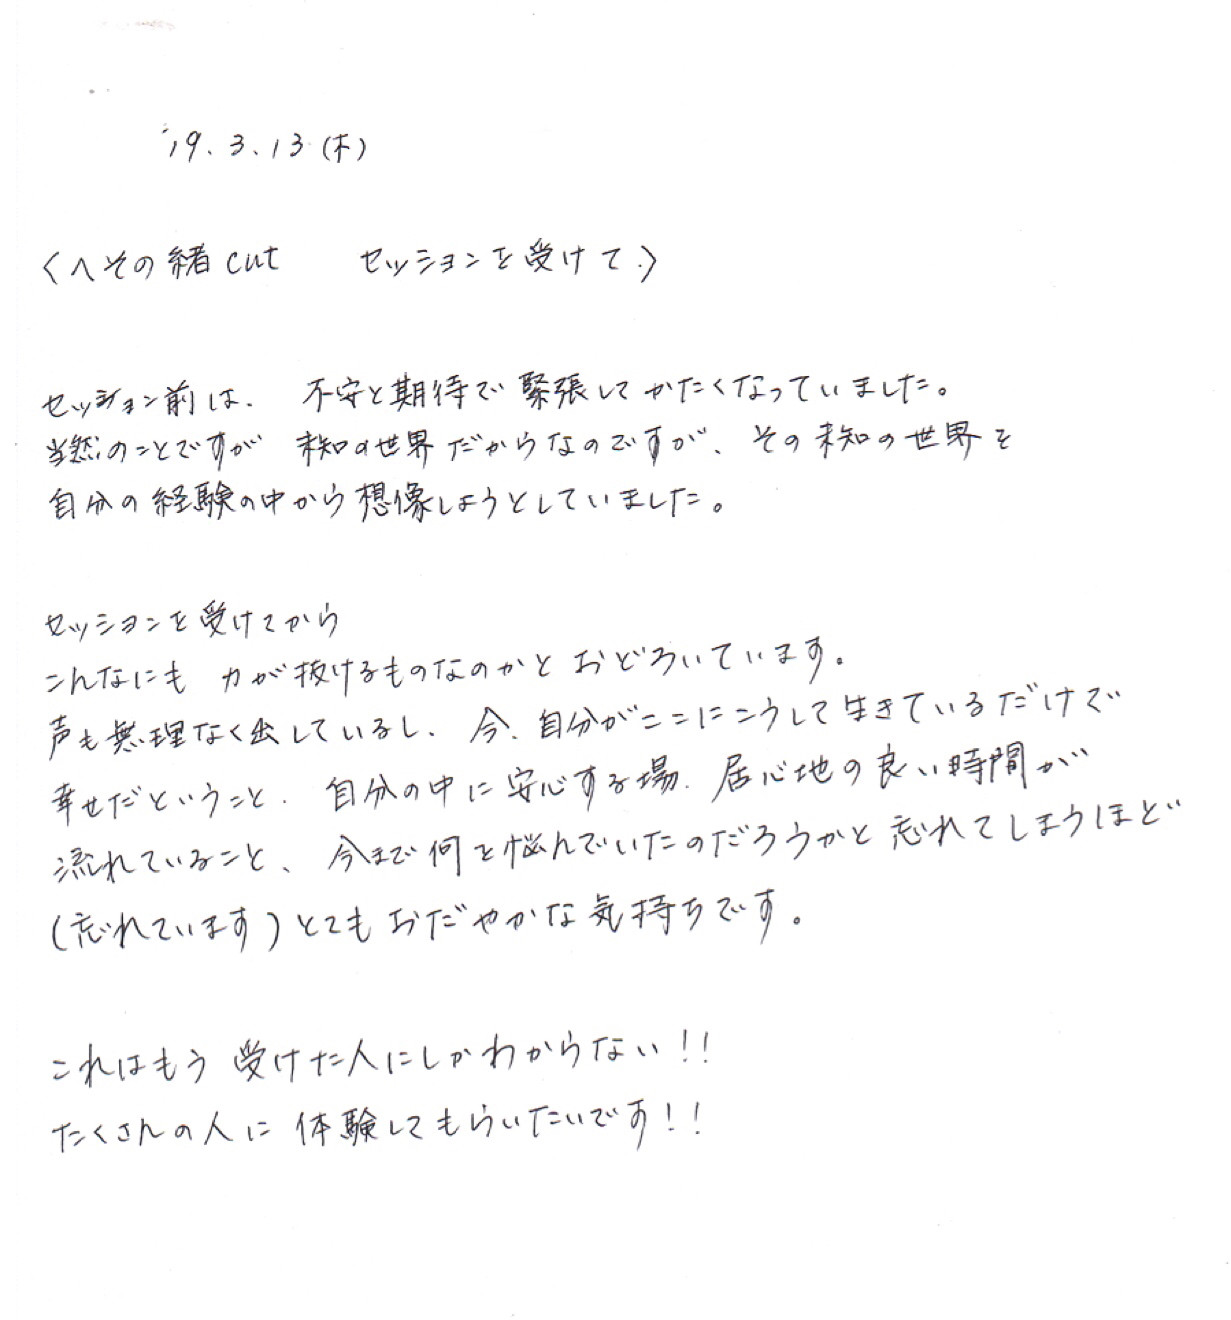 '19.3.13(木)
〈へその緒cut　セッションを受けて.〉
セッション前は、不安と期待で緊張してかたくなっていました。
当然のことですが　未知の世界だからなのですが、その未知の世界を
自分の経験の中から想像しようとしていました。
セッションを受けてから
こんなにも　力が抜けるものなのかと　おどろいています。
声も無理なく出しているし、今、自分がここにこうして生きているだけで
幸せだということ、自分の中に安心する場、居心地の良い時間が
流れていること、今まで何を悩んでいたのだろうかと忘れてしまうほど
(忘れています)とてもおだやかな気持ちです。
これはもう　受けた人にしかわからない!!
たくさんの人に　体験してもらいたいです!!